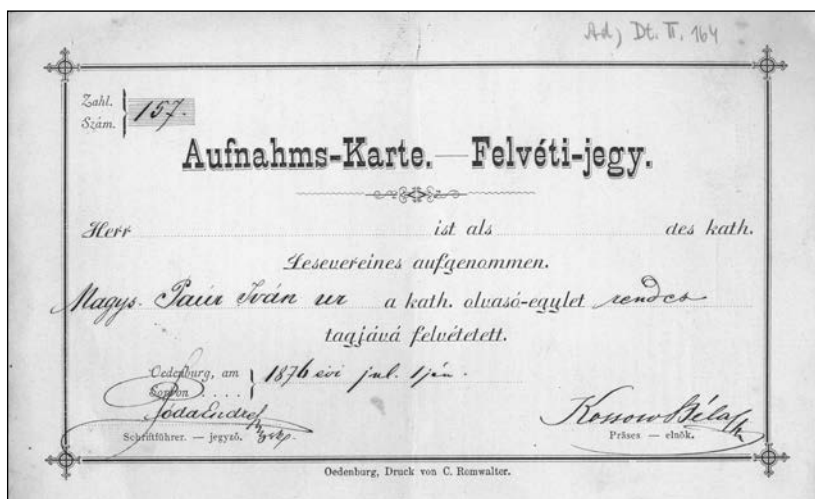 Ad, Dt. II. 164
Zahl.
Szám. 157.
Aufnahms-Karte. — Felvéti-jegy.
Herr ist als des kath.
Lesevereines aufgenommen.
Nagys. Paúr Iván úr a kath. olvasó-egylet rendes
tagjává felvétetett.
Oedenburg, am
Sopron . . . . 1876 évi jul. 1jén.
Póda Endre Kossow Béla
Schriftführer. — jegyző. Präses — elnök.
Oedenburg, Druck von C. Romwalter.